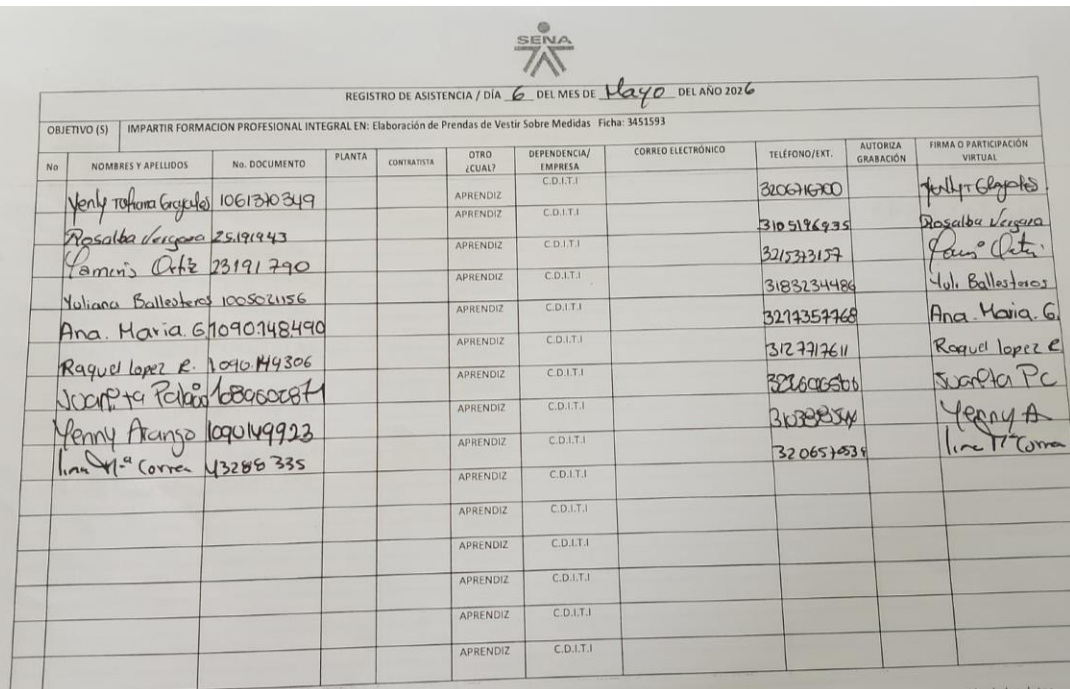 SENA
REGISTRO DE ASISTENCIA / DÍA 6 DEL MES DE Mayo DEL AÑO 2026
OBJETIVO (S) IMPARTIR FORMACION PROFESIONAL INTEGRAL EN: Elaboración de Prendas de Vestir Sobre Medidas Ficha: 3451593
No NOMBRES Y APELLIDOS No. DOCUMENTO PLANTA CONTRATISTA OTRO ¿CUAL? DEPENDENCIA/ EMPRESA CORREO ELECTRÓNICO TELÉFONO/EXT. AUTORIZA GRABACIÓN FIRMA O PARTICIPACIÓN VIRTUAL
Yenly Tatiana Grajales 1061370349 APRENDIZ C.D.I.T.I 3206716700
Rosalba Vergara 25.191943 APRENDIZ C.D.I.T.I 3105196935 Rosalba Vergara
Yameris Ortiz 23191790 APRENDIZ C.D.I.T.I 3215373157
Yuliana Ballesteros 1005021156 APRENDIZ C.D.I.T.I 3183234486 Yuli Ballesteros
Ana. Maria. G 1090148490 APRENDIZ C.D.I.T.I 3217357768 Ana. Maria. G.
Raquel Lopez R. 1090.144306 APRENDIZ C.D.I.T.I 3127717611 Raquel Lopez R
APRENDIZ C.D.I.T.I
Yenny Arango 1090149923 APRENDIZ C.D.I.T.I Yenny A
lina Mª Correa 43288335 APRENDIZ C.D.I.T.I lina Mª Correa
APRENDIZ C.D.I.T.I
APRENDIZ C.D.I.T.I
APRENDIZ C.D.I.T.I
APRENDIZ C.D.I.T.I
APRENDIZ C.D.I.T.I
APRENDIZ C.D.I.T.I